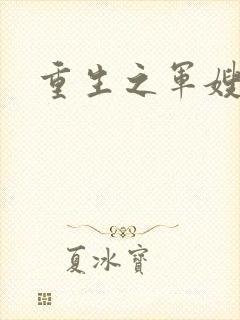 重生之军嫂
夏冰寶